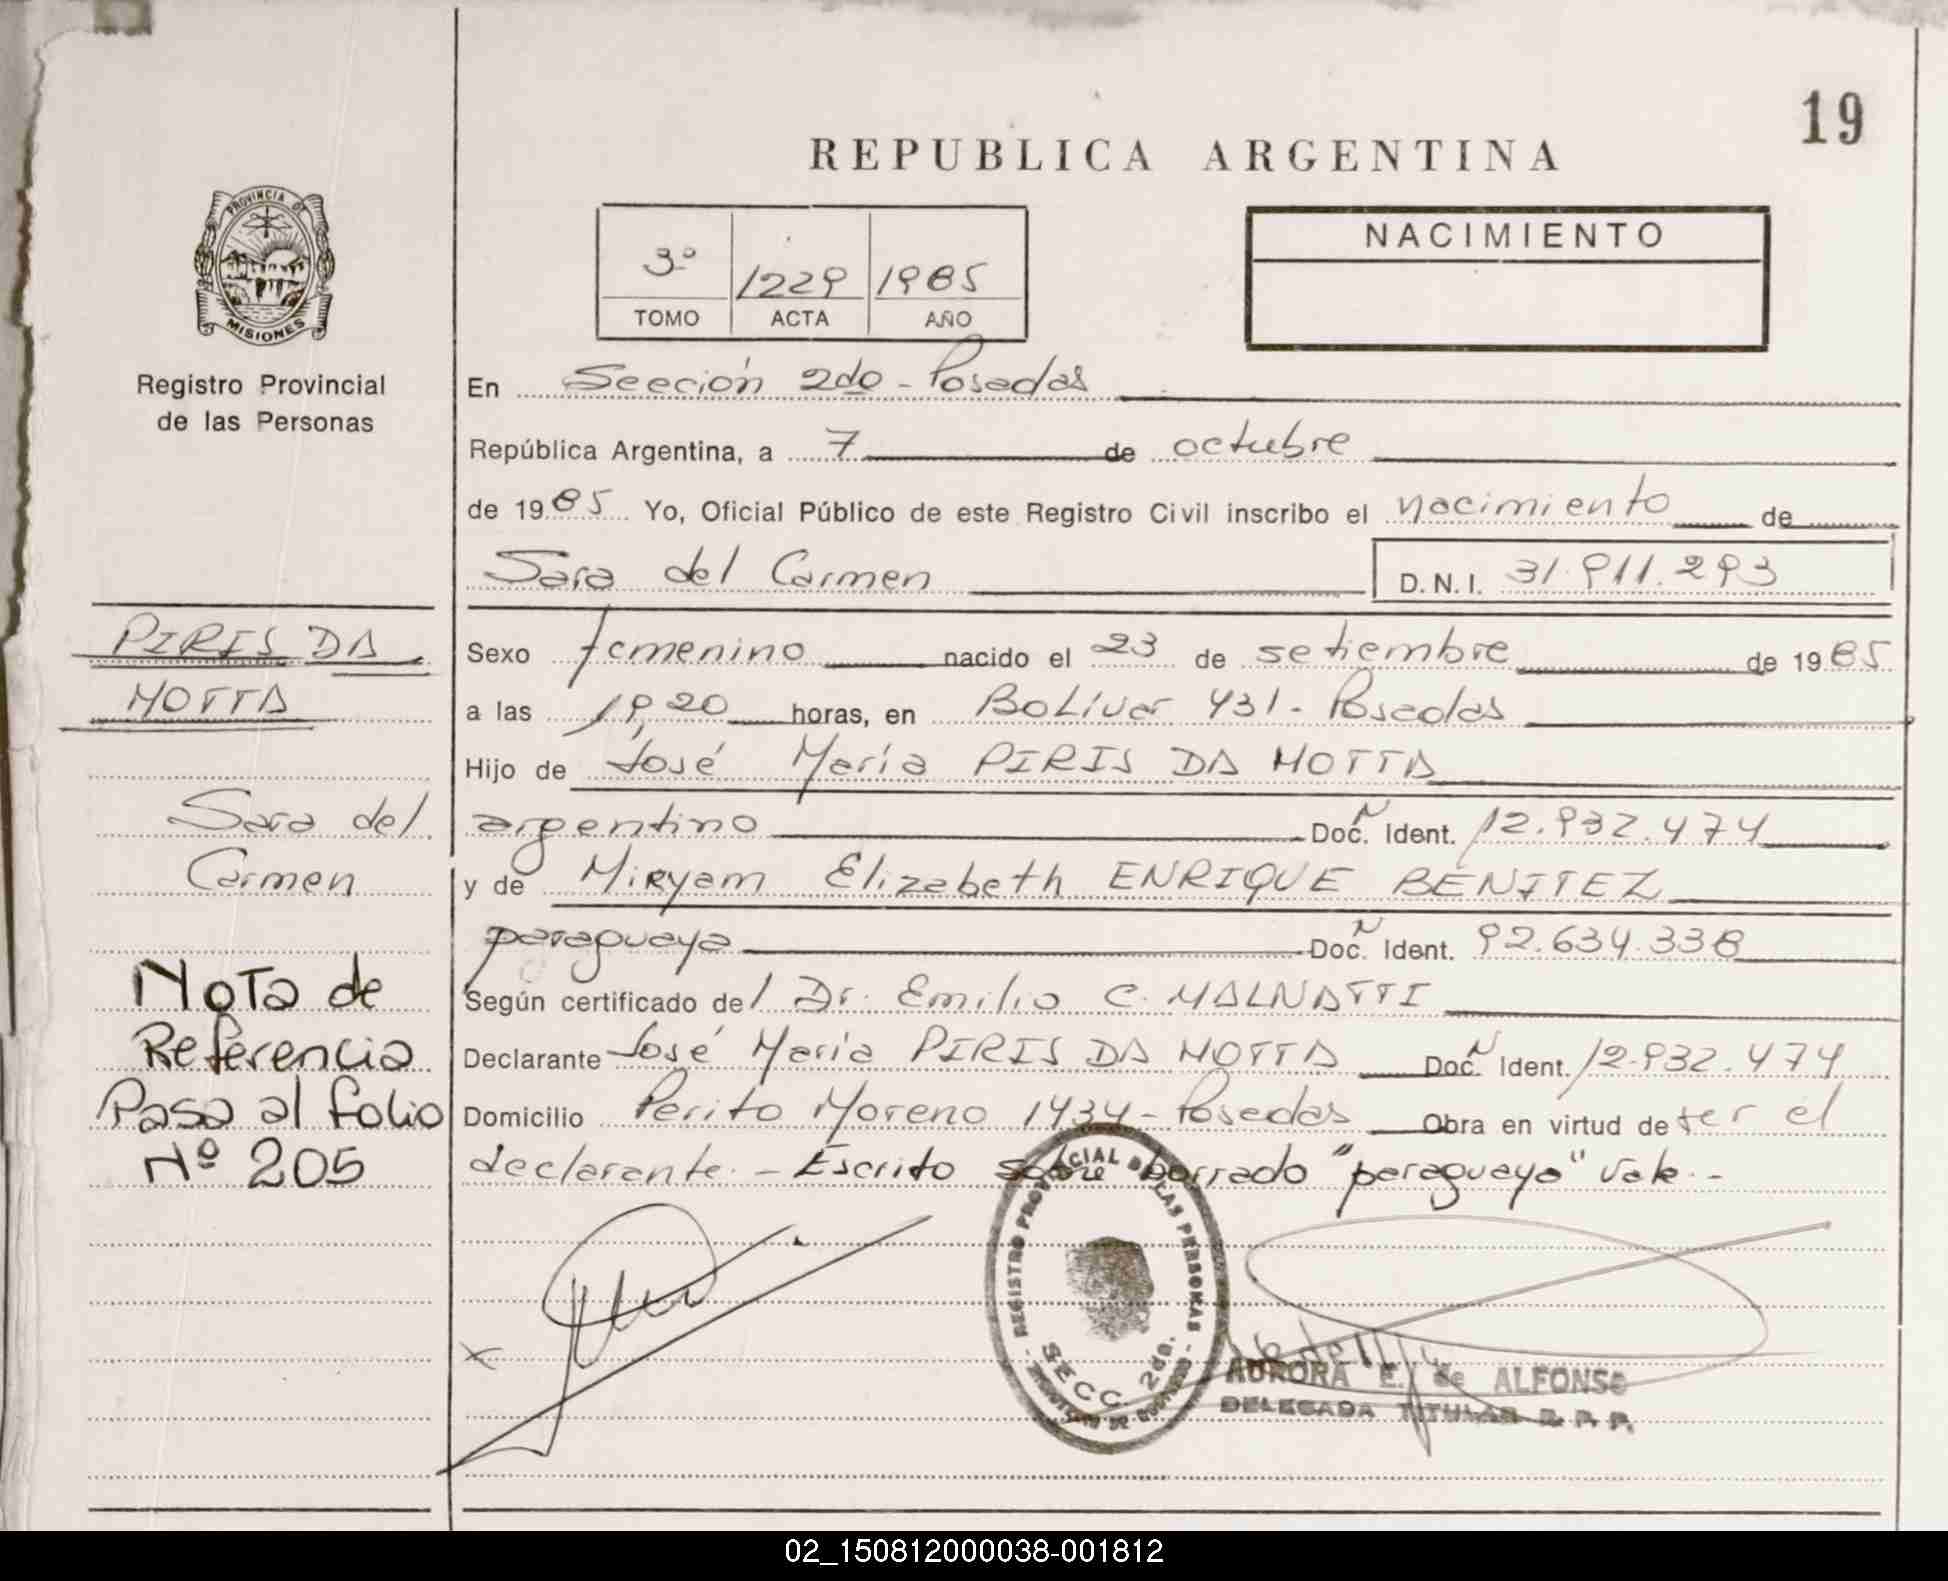 19
REPUBLICA ARGENTINA
PROVINCIA DE
MISIONES
Registro Provincial
de las Personas
3º 1229 1985
TOMO ACTA AÑO
NACIMIENTO
En Sección 2da - Posadas
República Argentina, a 7 de octubre
de 1985 Yo, Oficial Público de este Registro Civil inscribo el nacimiento de
Sara del Carmen D.N.I. 31.911.293
PIRIS DA
MOTTA
Sara del
Carmen
Nota de
Referencia
Pasa al folio
Nº 205
Sexo femenino nacido el 23 de setiembre de 1985
a las 19,20 horas, en Bolívar 431 - Posadas
Hijo de José María PIRIS DA MOTTA
argentino Doc. Ident. 12.932.474
y de Miryam Elizabeth ENRIQUE BENITEZ
paraguaya Doc. Ident. 92.634.338
Según certificado del Dr. Emilio C. MALNATTI
Declarante José María PIRIS DA MOTTA Doc. Ident. 12.932.474
Domicilio Perito Moreno 1434 - Posadas Obra en virtud de ser el
declarante. - Escrito sobre borrado "paraguaya" Vale. -
REGISTRO PROVINCIAL DE LAS PERSONAS
SECC. 2da.
AURORA E. de ALFONSO
DELEGADA TITULAR R. P. P.
02_150812000038-001812